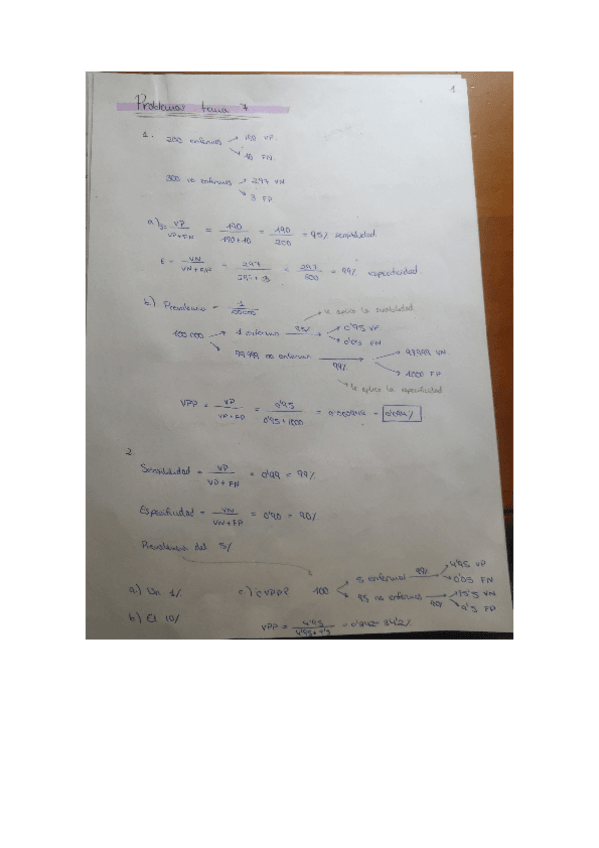 1
Problemas tema 7
1. 200 enfermos → 190 VP.
→ 10 FN.
300 no enfermos → 297 VN
→ 3 FP
a) S = VP / VP+FN = 190 / 190+10 = 190 / 200 = 95% sensibilidad
E = VN / VN+FP = 297 / 297+3 = 297 / 300 = 99% especificidad.
b) Prevalencia = 1 / 100000
→ le aplico la sensibilidad
100 000 → 1 enfermo 95% → 0'95 VP
→ 0'05
→ 99999 no enfermos 99% → VN
→ 1000 FP
→ le aplico la especificidad
VPP = VP / VP+FP = 0'95 / 0'95+1000 =
2.
Sensibilidad = VP / VP+FN = 0'99 = 99%
Especificidad = VN / VN+FP = 0'90 = 90%
Prevalencia del 5%
a) Un 1%
b) El 10%
c) ¿VPP? 100 → 5 enfermos 99% → 4'95 VP
→ 0'05 FN
→ 95 no enfermos 90% → VN
→ 9'5 FP
VPP =